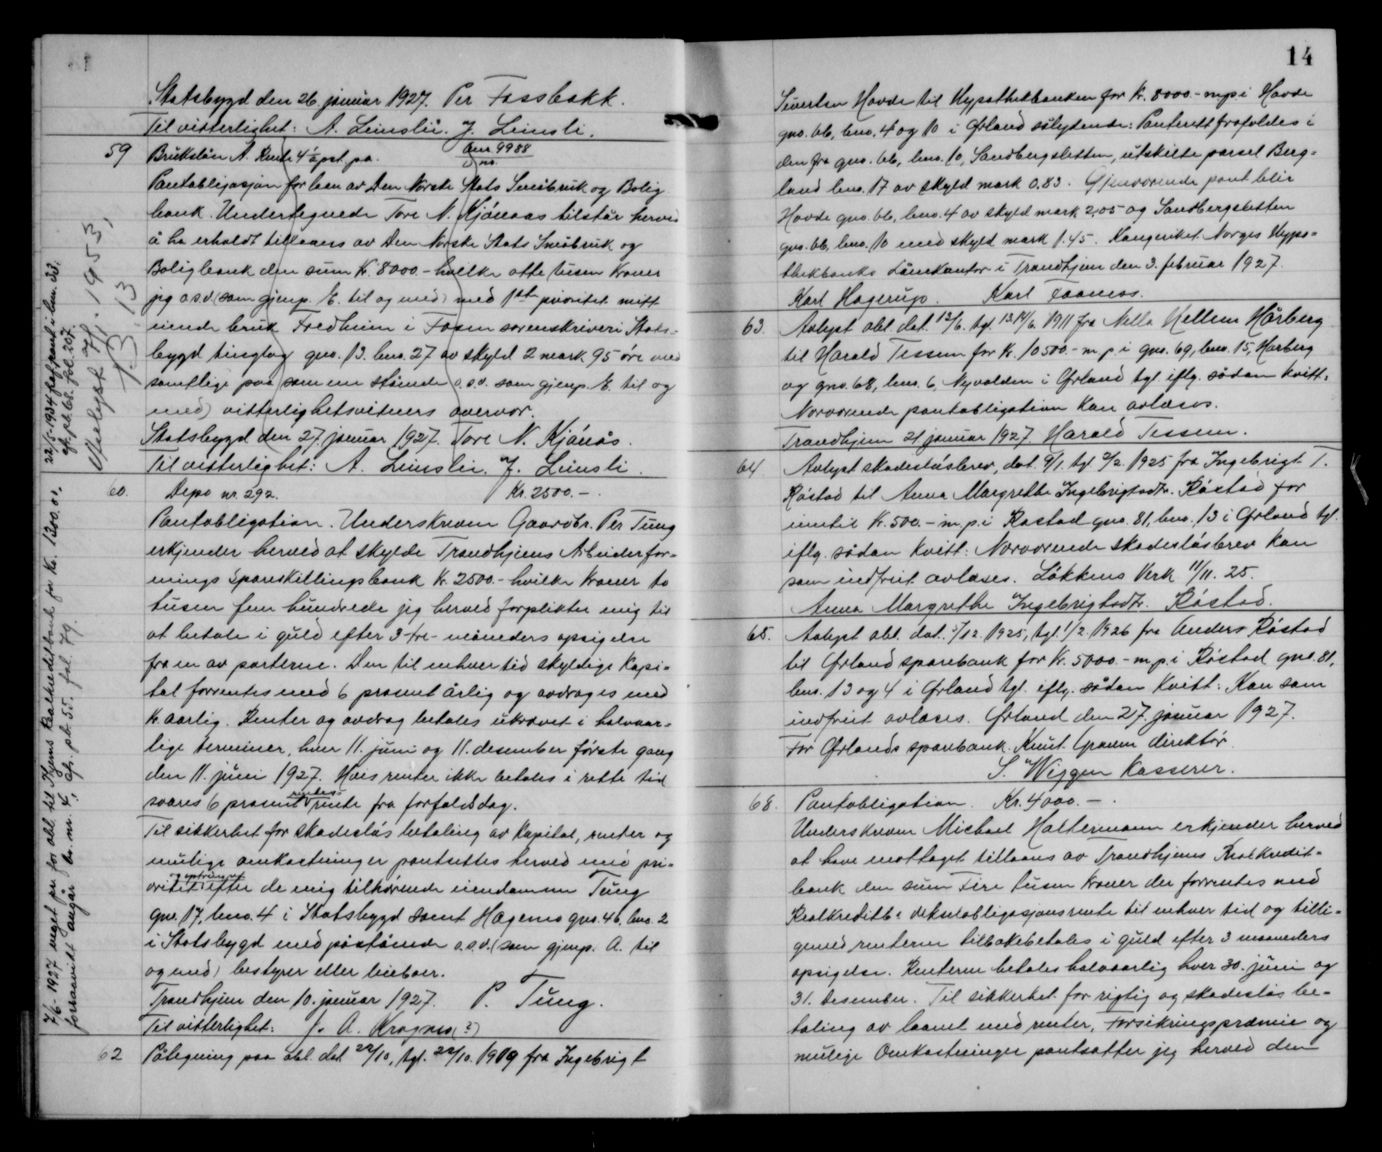 Statsbygd den 26. januar 1927. Per Fossbakk.
Til vitterlighet: A. Leinsli. J. Leinsli.
59 Brukslån A. Rente 4½ pct. pa. Anr 9988
no.
Pantobligasjon for laan av Den Norske Stats Småbruk og Bolig
bank. Undertegnede Tore N. Kjónaas tilstår herved
å ha erholdt tillaans av Den Norske Stats Småbruk og
Boligbank den sum Kr. 8000.- hvilke otte tusen Kroner
jeg o.s.v. (som gjenp. E. til og med) med 1st prioritet mitt
eiende bruk Fredheim i Fosen sorenskriveri Stats-
bygd tinglag gno. 13. bno. 27 av skyld 2 mark 95 øre med
samtlige paa samme stående o.s.v. som gjenp. E. til og
med) vitterlighetsvitners overvær.
Statsbygd den 27. januar 1927. Tore N. Kjónås.
Til vitterlighet: A. Leinsli. J. Leinsli.
60. Depo nr. 292. Kr. 2500.-
Pantobligation. Underskreven Gaardbr. Per Tung
erkjender herved at skylde Trondhjems Arbeiderfor-
enings Spareskillingsbank Kr. 2500.- hvilke Kroner to
tusen fem hundrede jeg herved forplikter mig til
at betale i guld efter 3-tre- måneders opsigelse
fra en av parterne. Den til enhver tid skyldige Kapi-
tal forrentes med 6 prosent årlig og avdrages med
Kr. aarlig. Renter og avdrag betales ukrævet i halvaar-
lige terminer, hver 11. juni og 11. desember første gang
den 11. juni 1927. Hvis renter ikke betales i rette tid
svares 6 prosent rentes rente fra forfaldsdag.
Til sikkerhet for skadesløs betaling av Kapital, renter og
mulige omkostninger pantsettes herved med pri-
oritet og optrinsret efter de mig tilhørende eiendommer Tung
gno. 17, bno. 4 i Statsbygd samt Hagemo gno. 46, bno. 2
i Statsbygd med påstående o.s.v. (som gjenp. A. til
og med) bestyrer eller leieboer.
Trondhjem den 10. januar 1927. P. Tung.
Til vitterlighet: J. A. Krognes (?)
62 Påtegning paa obl. dat 22/10, tgl. 22/10. 1919 fra Ingebrigt
22/5-1934 pkf. præf. i bno. 33.
gk. pb. 68. fol. 207.
Avlyst 7/1. 1953,
J.B. 13
7/6-1927 veget pr. for obl. til Tr.hjems Realkreditbank for Kr. 1300.00,
forsaavidt angår br. nr. 4, afs. pb. 55. fol. 79.
14
Sivertsen Hovde til Hypothekbanken for Kr. 8000.- m.p. i Hovde
gno. 66, bno. 4 og 10 i Ørland sålydende: Panterett frafaldes i
den fra gno. 66, bno. 10, Sandbergsletten, utskilte parsel Berg-
land bno. 17 av skyld mark 0.83. Gjenværende pant blir
Hovde gno. 66, bno. 4 av skyld mark 2,05 og Sandbergsletten
gno. 66, bno. 10 med skyld mark 1.45. Kongeriket Norges Hypo-
thekbanks Lånekontor i Trondhjem den 3. februar 1927.
Karl Hagerup. Karl Taamos.
63. Avlyst obl. dat. 12/6. tgl. 13.14/6. 1911 fra Nella Hellem Hårberg
til Harald Tessem for Kr. 10500.- m.p. i gno. 69, bno. 15, Harberg
og gno. 68, bno. 6, Nyvolden i Ørland tgl. iflg. sådan Kvitt:
Nærværende pantobligation kan avlæses.
Trondhjem 21 januar 1927 Harald Tessem.
64 Avlyst skadesløsbrev, dat. 9/1. tgl. 2/2. 1925 fra Ingebrigt T.
Røstad til Anna Margrethe Ingebrigtsdtr. Røstad for
inntil Kr. 500.- m.p. i Røstad gno. 81, bno. 13 i Ørland tgl.
iflg. sådan Kvitt: Nærværende skadesløsbrev kan
som indfriet avlæses. Løkkens Verk 11/11. 25.
Anna Margrethe Ingebrigtsdtr. Røstad.
65. Avlyst obl. dat. 5/12. 1925, tgl. 1/2. 1926 fra Anders Røstad
til Ørland sparebank for Kr. 5000.- m.p. i Røstad gno. 81,
bno. 13 og 4 i Ørland tgl. iflg. sådan Kvitt: Kan som
indfriet avlæses. Ørland den 27. januar 1927.
For Ørlands sparebank. Knut Graven direktør.
S. Wiggen Kasserer.
68. Pantobligation. Kr. 4000.-.
Underskreven Michael Haltermann erkjender herved
at have mottaget tillaans av Trondhjems Realkredit-
bank den sum Fire tusen Kroner der forrentes med
Realkreditb.s deksobligasjonsrente til enhver tid og tilli-
gemed renterne tilbakebetales i guld efter 3 maaneders
opsigelse. Renterne betales halvaarlig hver 30. juni og
31. desember. Til sikkerhet for rigtig og skadesløs be-
taling av laanet med renter, Forsikringspræmie og
mulige Omkostninger pantsætter jeg herved den